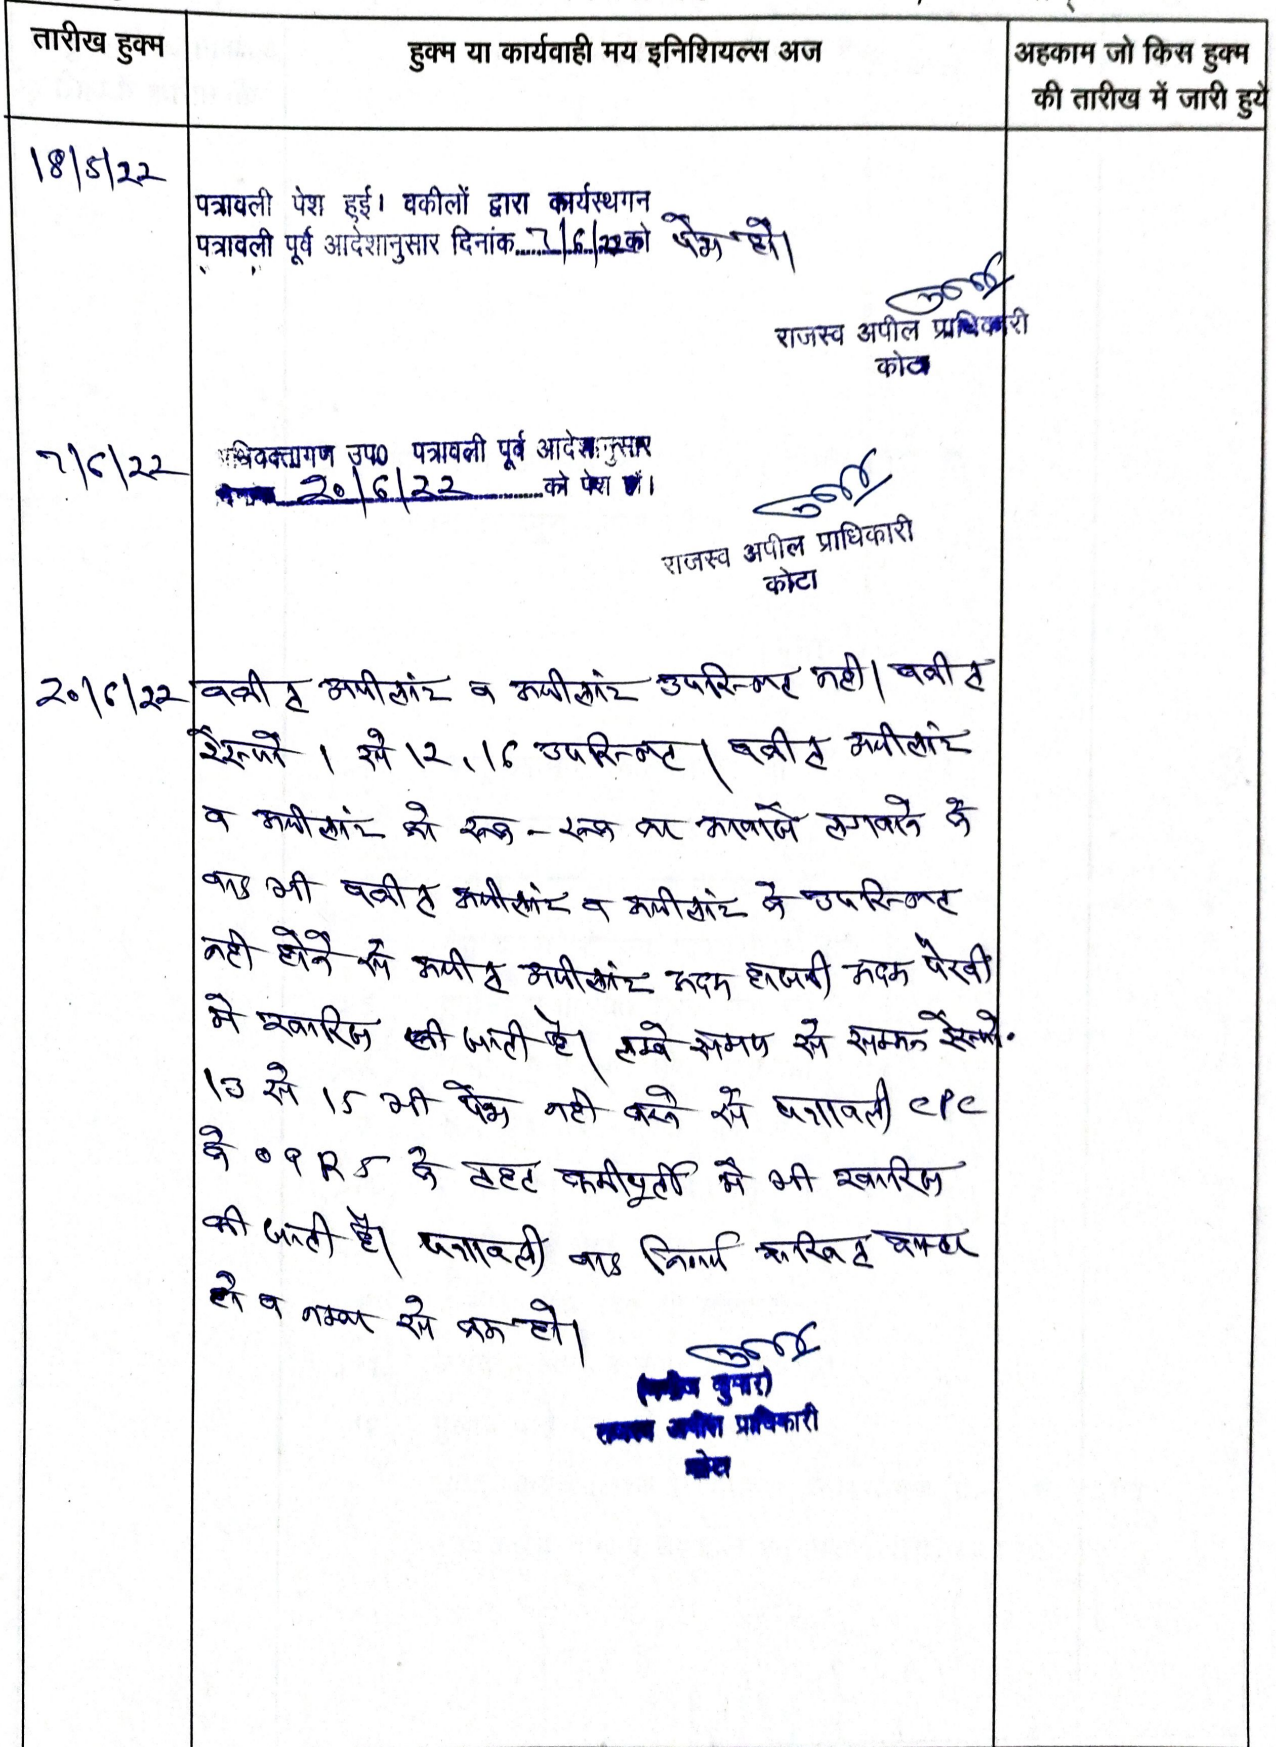 तारीख हुक्म
हुक्म या कार्यवाही मय इनिशियल्स अज
अहकाम जो किस हुक्म
की तारीख में जारी हुये
18/5/22
पत्रावली पेश हुई। वकीलों द्वारा कार्यस्थगन
पत्रावली पूर्व आदेशानुसार दिनांक 7/6/22 को पेश हो।
राजस्व अपील प्राधिकारी
कोटा
7/6/22
अभिवक्तागण उप0 पत्रावली पूर्व आदेशानुसार
20/6/22 को पेश हो।
राजस्व अपील प्राधिकारी
कोटा
20/6/22 वकील अपीलांट व अपीलांट उपस्थित नही। वकील
रेस्पो 1 से 12, 16 उपस्थित। वकील अपीलांट
व अपीलांट को रूक-रूक कर आवाजें लगवाने के
बाद भी वकील अपीलांट व अपीलांट के उपस्थित
नही होने से अपील अपीलांट अदम हाजरी अदम पैरवी
मे खारिज की जाती है। लम्बे समय से सम्मन रेस्पो.
13 से 15 भी पेश नही करने से पत्रावली CPC
के O9R5 के तहत कमीपूर्ती में भी खारिज
की जाती है। पत्रावली बाद निर्णय दाखिल दफ्तर
हो व नम्बर से कम हो।
कुमार)
राजस्व अपील प्राधिकारी
कोटा